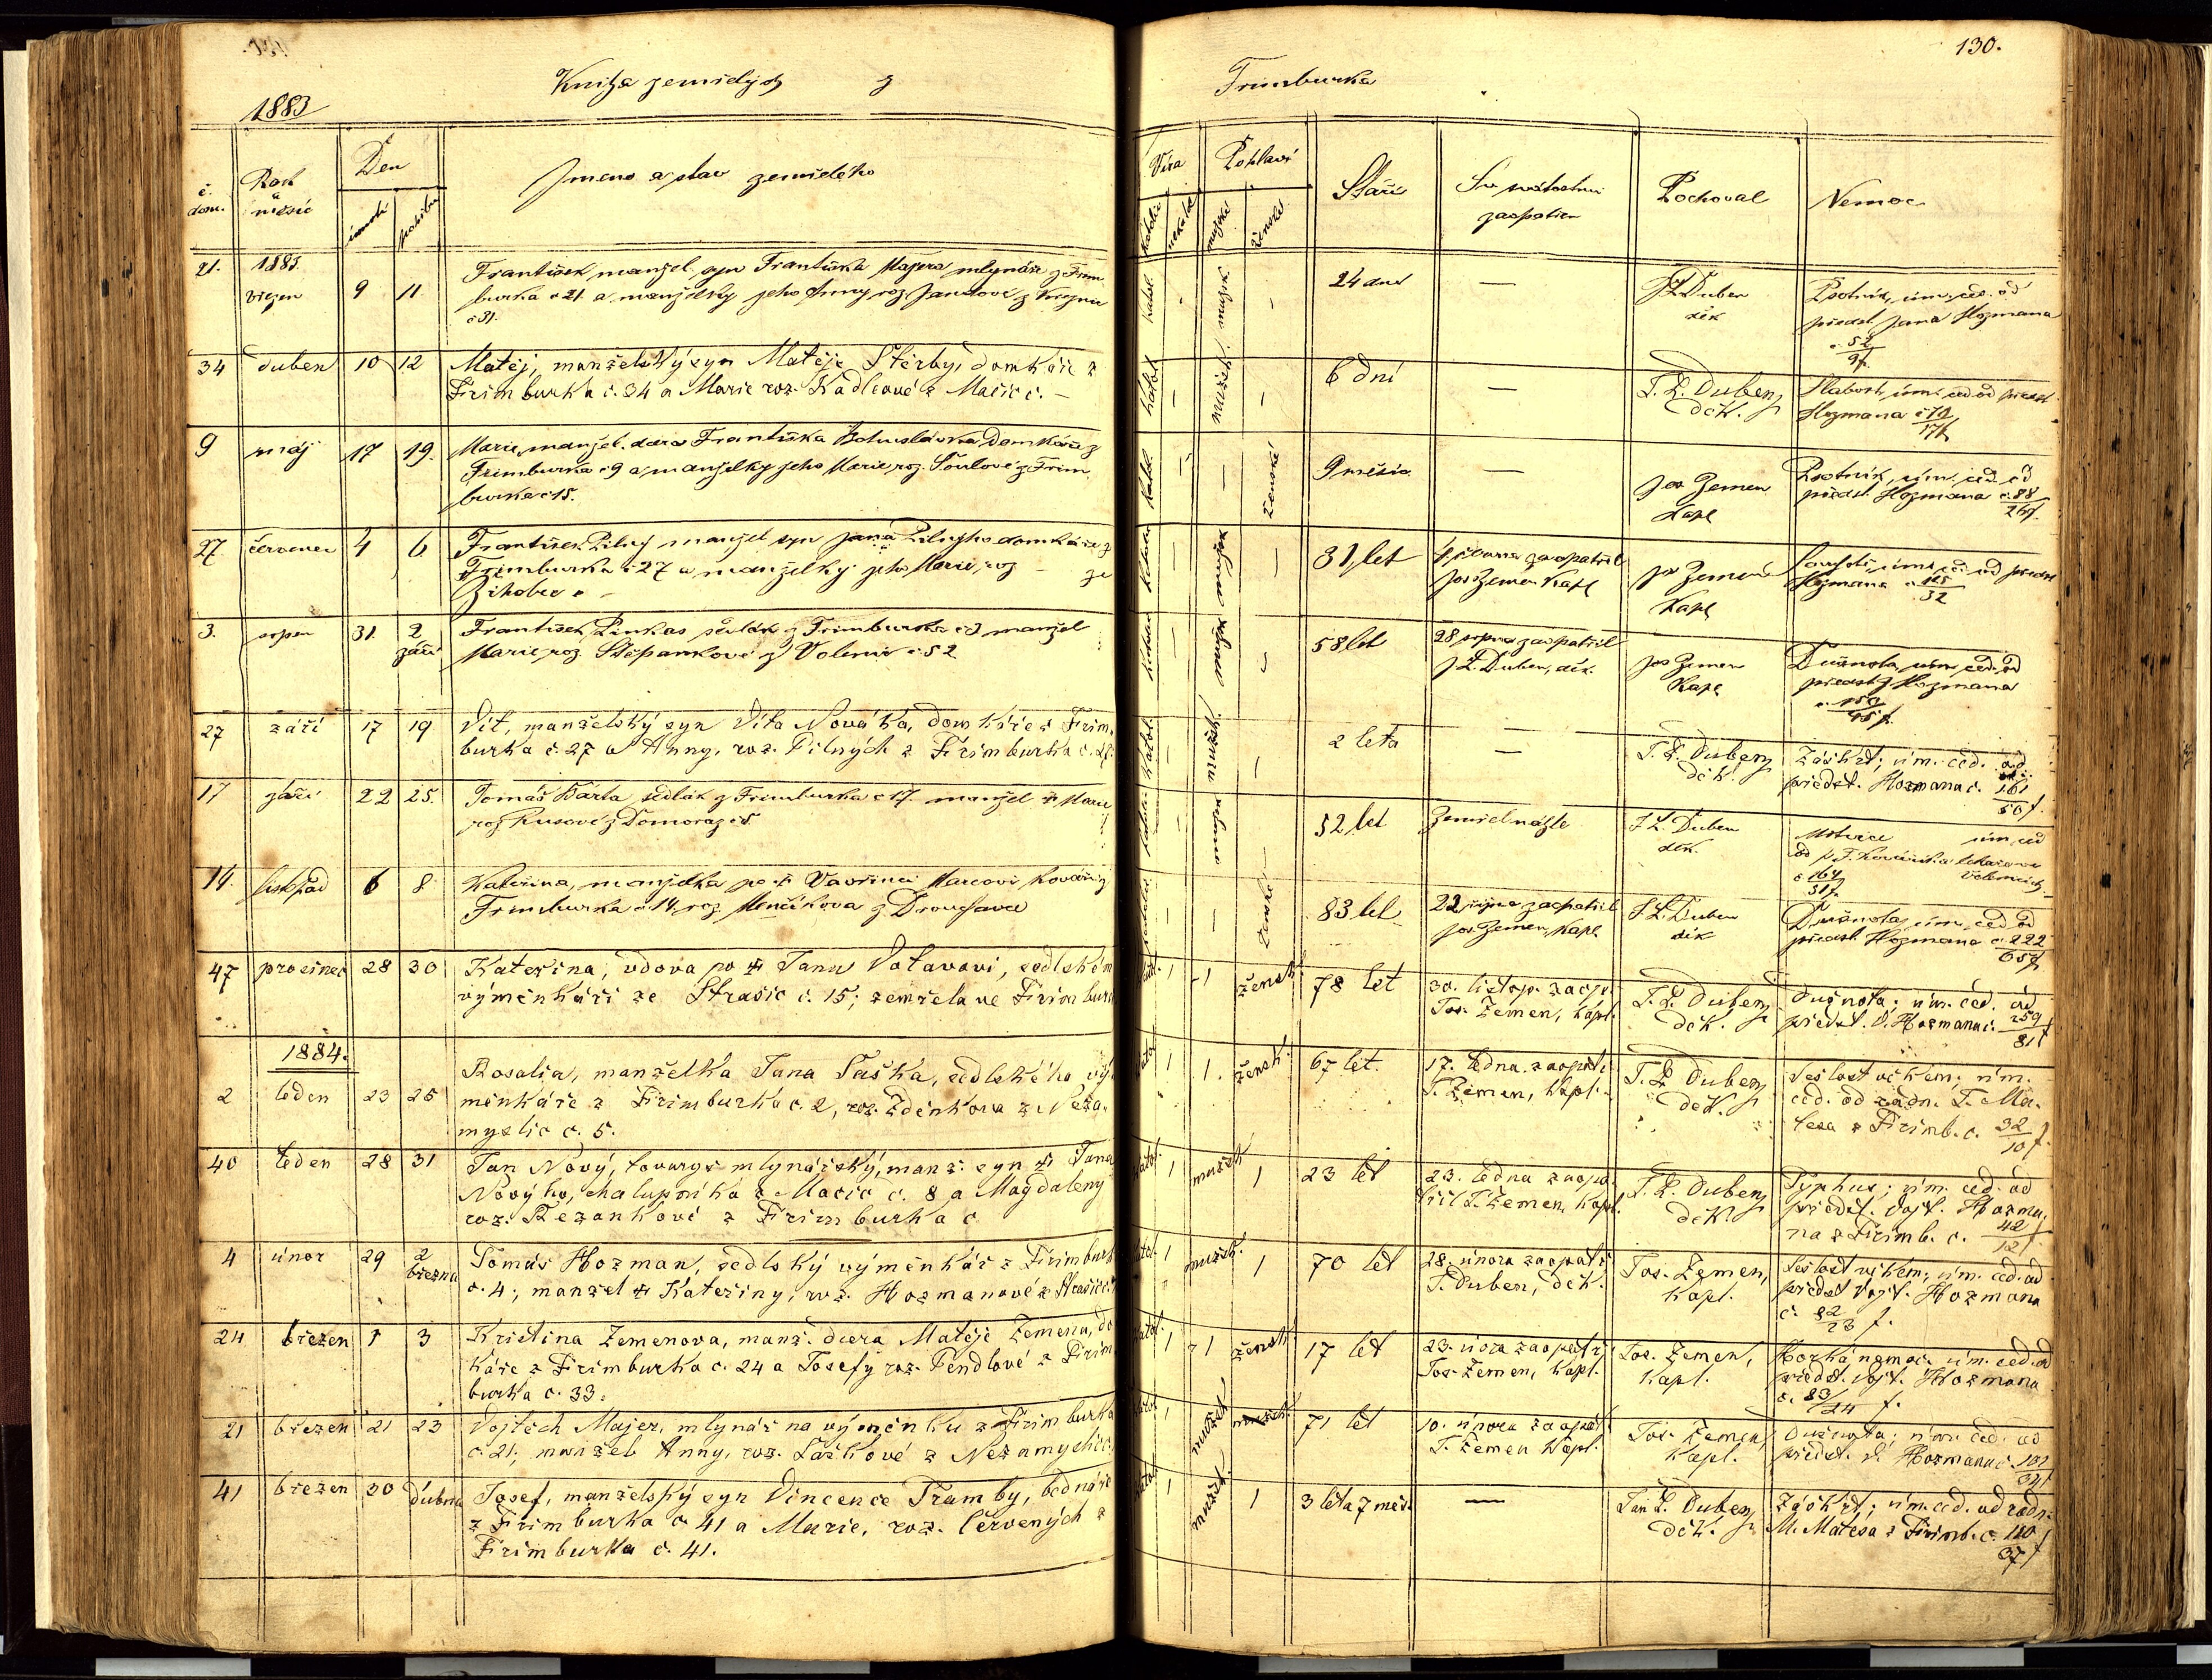 130.
Kniha zemřelých z Frimburka
1883
č. dom.
Rok a měsíc
Den
úmrtí
pohřbu
Jmeno a stav zemřelého
Víra
katolic
nekatol
Pohlaví
mužské
ženské
Stáří
Sv. svátostmi zaopatřen
Pochoval
Nemoc
21. 1883 březen 9 11 František, manžel. syn Františka Majera, mlynáře z Frim
burka č 21 a manželky jeho Anny roz. Jandové z
č 31.
katol. mužské 24 dnů — J. L. Duben děk Psotník, úm. ced. od
předst. Jana Hozmana
č. 52
9f.
34 duben 10 12 Matěj, manželský syn Matěje Štěrby, domkáře z
Frimburka č. 34 a Marie roz. Kadlecové z Mačic č. –
katol. mužsk. 6 dní — J. L. Duben, děk. Slabost, úm. ced. od předst.
Hozmana č 79
17f
9 máj 17 19. Marie, manžel. dcera Františka Bohuslávka, domkáře z
Frimburka č 9 a manželky jeho Marie, roz. Šoulové z Frim
burka č 15.
katol. ženské 9 měsíců — Jos Zemen Kapl Psotník, úm. ced. od
předst. Hozmana č. 88
27 červenec 4 6 František Pilný manžel syn Jana Pilnýho domkáře z
Frimburka č 27 a manželky jeho Marie, roz – ze
Žihobec č –
mužské 31 let zaopatřil
Jos Zemen Kapl
Jos Zemen Kapl úm. ced. od předst
Hozmana č 125
32
3. srpen 31. 2 září František Pinkas sedlák z Frimburka č 3 manžel
Marie, roz. Štěpankové z Volenic č 52
mužské 58 let 28 srpna zaopatřil
J. L. Duben, děk.
Jos Zemen Kapl Dušnota, úm. ced. od
předst. Hozmana
27 září 17 19 Vít, manželský syn Víta Nováka, domkáře z Frim-
burka č. 27 a Anny, roz. Pilných z Frimburka č. 27.
katol. mužsk. 2 léta — J. L. Duben, děk. Záškrt; úm. ced. od
předst. Hozmana č. 161
50f.
17 září 22 25. Tomáš Bárta sedlák z Frimburka č 17. manžel † Marie
roz. Rusové z Domoraz č 5.
52 let Zemřel náhle J L. Duben děk. Mrtvice úm. ced
od p. F. lékaře ve
Volenicích
č 164
51f
14. listopad 6 8 Kateřina, manželka po † Vavřinci Marcovi, kováři z
Frimburka č 14, roz. Menčíkova z
ženské 83 let 22 října zaopatřil
Jos. Zemen, Kapl
J L. Duben děk Dušnota, úm. ced. od
předst. Hozmana č. 222
65f
47 prosinec 28 30 Kateřina, vdova po † Janu Votavovi, sedlském
výměnkáři ze Strašic č. 15; zemřela ve Frimburce
1 -1 žensk. 78 let 30. listop. zaop.
Jos. Zemen, kapl.
J. L. Duben, děk. Dušnota; úm. ced. od
předst. V. Hozmana č. 259
81f
1884.
2 leden 23 25 Rosalia, manželka Jana Taška, sedlského vý-
měnkáře z Frimburka č. 2, roz. Zdeňkova z Neza-
myslic č. 5.
katol 1 1. žensk. 67 let. 17. ledna zaopatř.
J. Zemen, kapl.
J. L. Duben, děk. Sešlost věkem; úm.
ced. od radn. T. Ma-
teša z Frimb. č. 32
10f.
40 leden 28 31 Jan Nový, tovaryš mlynářský, manž. syn † Jana
Novýho, chalupníka z Mačic č. 8 a Magdaleny
roz. Řezankové z Frimburka č
katol. 1 mužsk 1 23 let 23. ledna zaopa-
třil J. Zemen, kapl.
J. L. Duben, děk. Typhus; úm. ced. od
předst. Vojt. Hozma-
na z Frimb. č. 42
12f.
4 únor 29 2 března Tomáš Hozman, sedlský výměnkář z Frimburk
č. 4; manžel † Kateřiny, roz. Hozmanové z
katol. 1 mužsk. 1 70 let 28. února zaopatř.
J. Duben, děk.
Jos. Zemen, kapl. Sešlost věkem; úm. ced. od
předst Vojt. Hozmana
č. 82
23 f.
24 březen 1 3 Kristina Zemenova, manž. dcera Matěje Zemena, do
káře z Frimburka č. 24 a Josefy roz. Pendlové z Frim
burka č. 33.
katol. 1 1 žensk 17 let 23. února zaopatř.
Jos. Zemen, kapl.
Jos. Zemen, kapl. Horká nemoc; úm. ced. od
předst. Vojt. Hozmana
č. 83
24 f.
21 březen 21 23 Vojtěch Majer, mlynář na výměnku z Frimburka
č. 21; manžel Anny, roz. Taškové z Nezamyslic č.
katol. 1 mužsk. 71 let 10. února zaopatř.
J. Zemen kapl.
Jos. Zemen, kapl. Dušnota; úm. ced. od
předst. V. Hozmana č. 101
34f
41 březen 30 dubna Josef, manželský syn Vincence Tramby, bednáře
z Frimburka č. 41 a Marie, roz. Červených z
Frimburka č. 41.
katol. 1 mužsk. 1 3 léta 7 měs. — Jan L. Duben, děk. Záškrt; úm. ced. od radn.
M. Mateša z Frimb. č. 110
37f